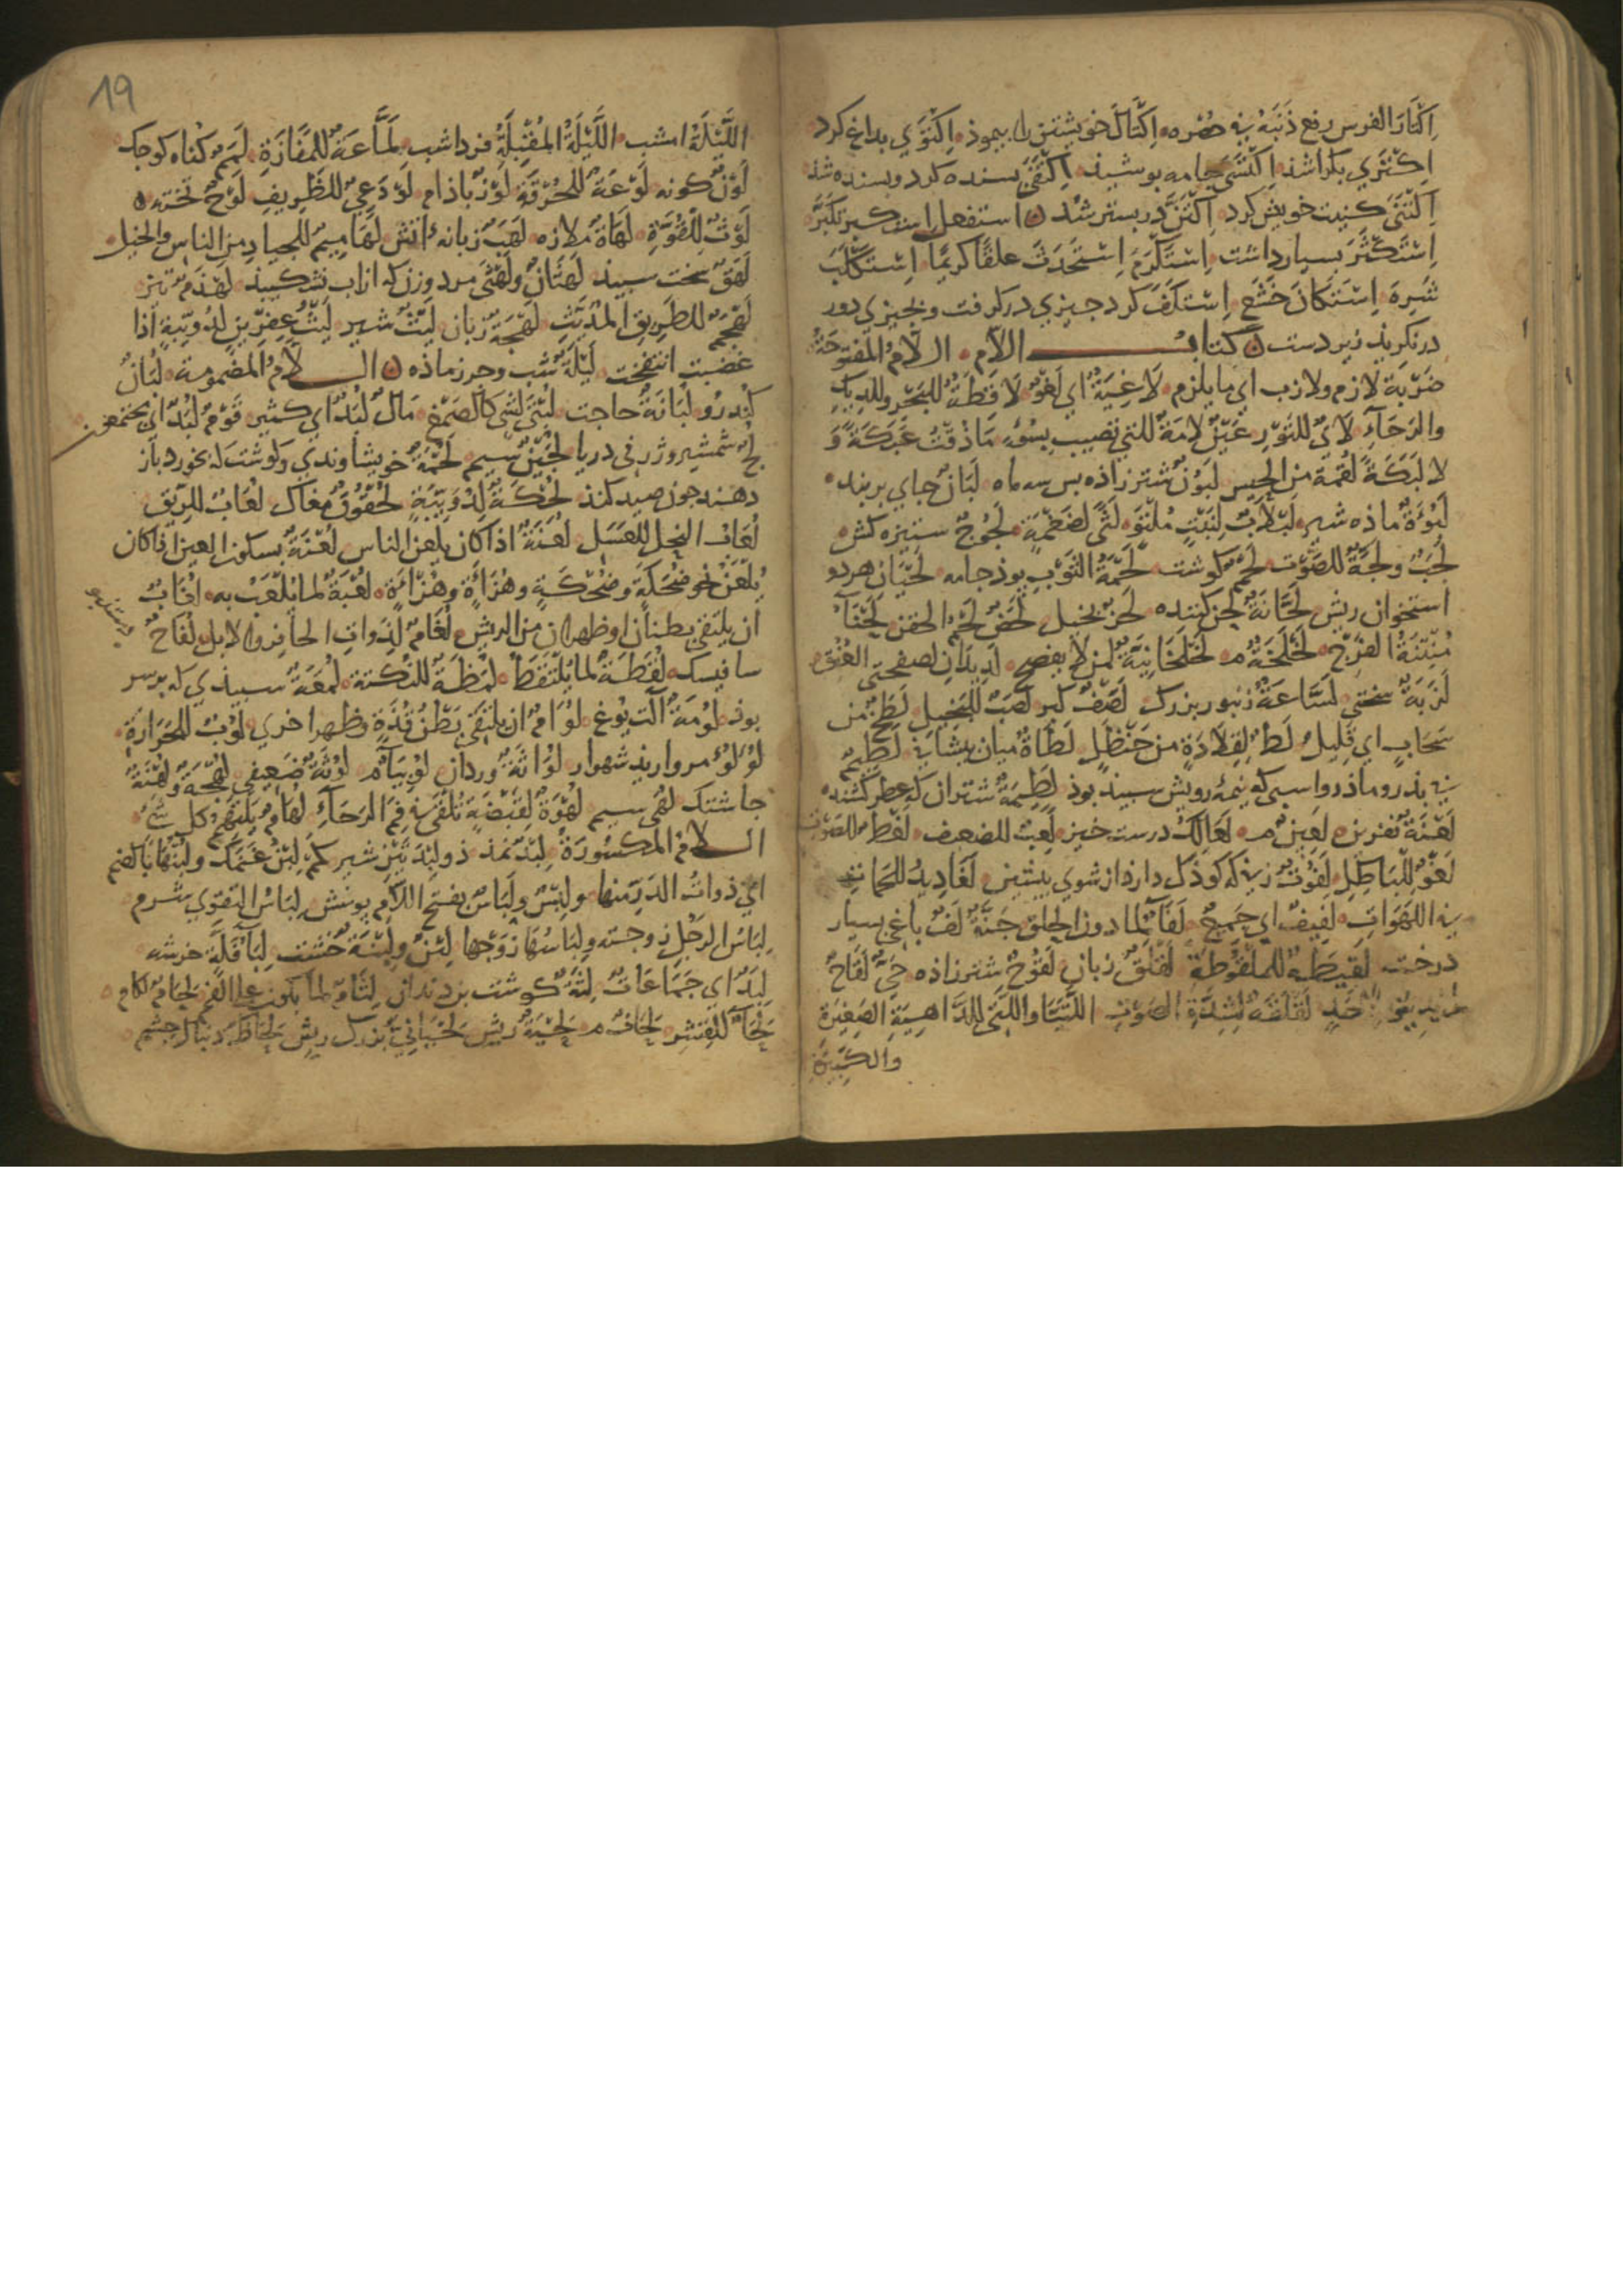 اِكْتَارَ الفرس رفع ذَنَبَهُ في حُضْره اِكْتَالَ خويشتن را بيموذ اِكْتَوَي بداغ كرد
اِكْتَرَي بكرا شذ اِكْتَسَي جامه بوشيذ اِكْتَفَي بسنده كرد و بسنده شذ
اِكْتَنَي كنيت خويش كرد اِكْتَنَّ در بستر شذ استفعل استكبر تكبّر
اِسْتَكْثَرَ بسيار داشت اِسْتَكْرَمَ اِسْتَحْدَثَ علقًا كريمًا اِسْتَكْلَبَ
شَرِهَ اِسْتَكَانَ خَشَعَ اِسْتَكَفَّ كرد جيزي در كرفت و بجيزي دور
در نكريذ زير دست كتاب اللام اللام المفتوحة
ضَرْبَة لازم ولازب اي ما يلزم لَاغِيَةٌ اي لَغْوٌ لَافِظَةٌ للبحر وللديك
والرَحَآءِ لَأيٌ للثَور عَيْنٌ لامَةٌ للتي تصيب بسُوء مَا ذقتُ عَبَكَةً وَ
لا لَبَكَةً لُقمة من الحيس لَبُوْنٌ شتر زاذه بس سه ماه لَبَانٌ جاي بربند
لَبُوْءَةٌ ماذه شير لَبْلَابٌ لِنَبْتٍ مُلْتَوٍ لَثًي لضَخْمَةٍ لَجُوْجٌ ستيزه كش
لَجَبٌ ولَجَّةٌ للصَّوْت لَحْمٌ كوشت لَحْمَةُ الثَّوْبِ بوذ جامه لَحْيَانِ هر دو
استخوان ريش لَحَّانَةٌ لحن كننده لَحِزٌ بخيل لَخَصٌ لحْمُ الجفن لَخْنَآءُ
مُنْتِنَةُ الفَرْج لَخْلَخَةٌ م لَخْلَخَانِيَّةٌ لمن لا يفصح لَدِيْدَانِ لصفحتي العُنُق
لَزْبَةٌ سختي لَسَّاعَةٌ زنبور بزرك لَصَفٌ كبر لَصِبٌ للبخيل لَطْخٌ من
سَحَابٍ اي قَلِيلٌ لَطٌّ لِقِلَادَةٍ من حَنْظَلٍ لَطَاةٌ ميان بيشاني لَطِيْمٌ
بي بذر و ماذر و اسبي كه نيمهٔ رويش سبيذ بوذ لَطِيْمَةٌ شتران كه عطر كشند
لَعْنَةٌ نفرين لَعِيْنٌ م لَعَالَكَ درست خيز لَعِبٌ للضعيف لَغَطٌ للصَوْت
لَغْوٌ لِلْبَاطِلِ لَفُوْتٌ زني كه كوذك دارد از شوي بيشين لَغَادِيْدُ للحمات
بين اللَهَوَاتِ لَفِيْفٌ اي جَمِيْعٌ لَفَآءٌ لما دون الحق جَنَّةٌ لَفٌّ باغي بسيار
درخت لَقِيْطَةٌ للملقُوْطة لَقْلَقٌ زبان لَقُوْحٌ شتر زاذه حَيٌّ لَقَاحٌ
لَقْلَقَةٌ لِشِدَّةِ الصَوْتِ اللَّتَيَّا والَّتِي للدَّاهِيَةِ الصَغِيْرَةِ
والكَبِيْرَةِ
19
اللَّيْلَةَ امشب اللَّيْلَةُ المُقْبِلَةُ فردا شب لَمَّاعَةٌ للمَفَازَةِ لَمَمٌ كناه كوجك
لَوْنٌ كونه لَوْعَةٌ للحُرْقَةِ لَوْزٌ باذام لَوْذَعِيٌّ للظَرِيفِ لَوْحٌ تخته
لَوْثٌ للقُوَّةِ لَهَاةٌ ملازه لَهَبٌ زبانهٔ اتش لَهَامِيْمُ للجياد من الناس والخيل
لَهَقٌ سخت سبيذ لَهْثَانُ ولَهْثَي مرد و زن كه از اب نشكيبد لَهْذَمٌ تيز
لَهْجَمٌ للطَرِيق المُدَيَّثِ لَهْجَةٌ زبان لَيْثٌ شير لَيْثُ عِفِرِّيْنَ لِدُوَيْبَّةٍ اذا
غضبت انتفخت لَيْلَةٌ شب وجرز ماذه اللام المضمومة لُبَانٌ
كُنْدُر و لُبَانَةٌ حاجت لُبْنَي لِشَيْ كالصَمْغ مَالٌ لُبَدٌ اي كثير قَوْمٌ لُبَدٌ اي مجتمعون
لُجٌّ شمشير و ژرفي دريا لُجَيْنٌ سيم لُحْمَةٌ خويشاوندي و كوشت كه بخورد باز
دهند جون صيد كند لُحَكَةٌ لِدُوَيْبَّةٍ لُخْقُوْقٌ مغاك لُعَابٌ للرِّيْق
لُعَابُ النحل للعَسَل لُعَنَةٌ اذا كان يلعن الناس لُعْنَةٌ بسكون العين اذا كان
يُلْعَنُ نحو ضُحَكَةٍ وضُحْكَةٍ وهُزَأَةٍ وهُزْأَةٍ لُعْبَةٌ لما يُلْعَبُ به
ان يلتقي بطنان او ظهران من الريش لُغَامٌ لِذَوات الحافر والابل لُفَاحٌ
سابيسك لُقَطَةٌ لما يُلْتَقَطُ لُمْظَةٌ للنُكْتَة لُمْعَةٌ سبيذي كه بر سر
بوذ لُوْمَةٌ آلت يُوغ لُؤَامٌ ان يلتقي بَطْنُ قُذَّةٍ وظهر اخري لُوْبٌ للحَرَارة
لُؤْلُؤٌ مرواريذ شهوار لُوَاثَةٌ وردان لُوْبِيَآءُ م لُوْثَةٌ ضَعِيفي لُهْجَةٌ ولُهْنَةٌ
جاشتك لُهًي سيم لُهْوَةٌ لِقَبْضَةٍ تُلْقَي في فَمِ الرَحَآءِ لُهَامٌ يَلْتَهِمُ كل شَيْ
اللام المكسُورَةُ لِبْدٌ نمذ ذو لِبْدَتَيْنِ شير كَمْ لِبْنُ غَنَمِكَ ولُبْنُهَا بالضم
اي ذواتُ الدَرِّ منها ولِبْسٌ ولِبَاسٌ بفتح اللام بوشش لِبَاسُ التقوي شرم
لِبَاسُ الرَجُلِ زوجته ولِبَاسُهَا زَوْجُها لِبْنٌ ولِبْنَةٌ خشت لِبَأٌ فَلَّهْ خرشه
لِبَدٌ اي جَمَاعَاتٌ لِثَةٌ كوشت بن دندان لِثَامٌ لما يكون علي الفَم لِجَامٌ لكام
لِحَآءٌ للقِشْرِ لِحَافٌ م لِحْيَةٌ ريش لِحْيَانِيٌّ بزرك ريش لِحَاظٌ دنبال جشم